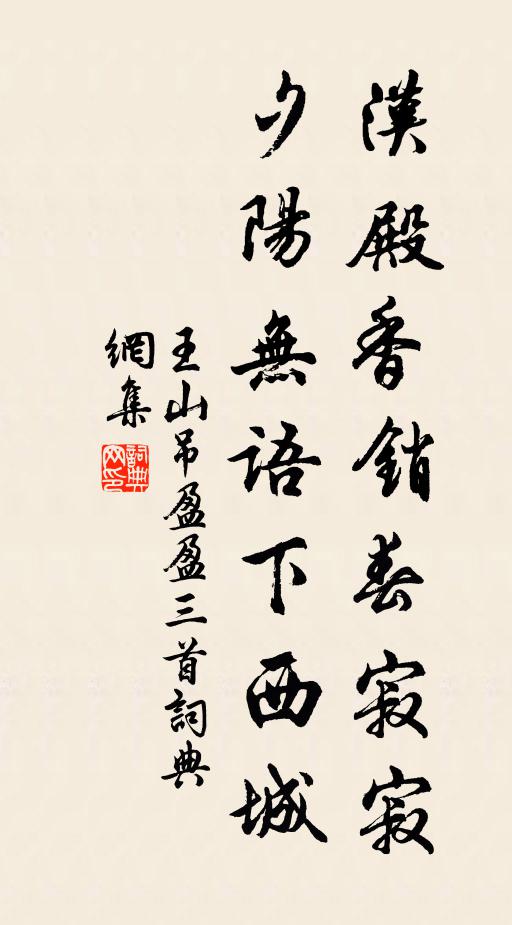 漢殿香銷春寂寂
夕陽無語下西城
王山吊盈盈三首詞典
網集
詞典网印